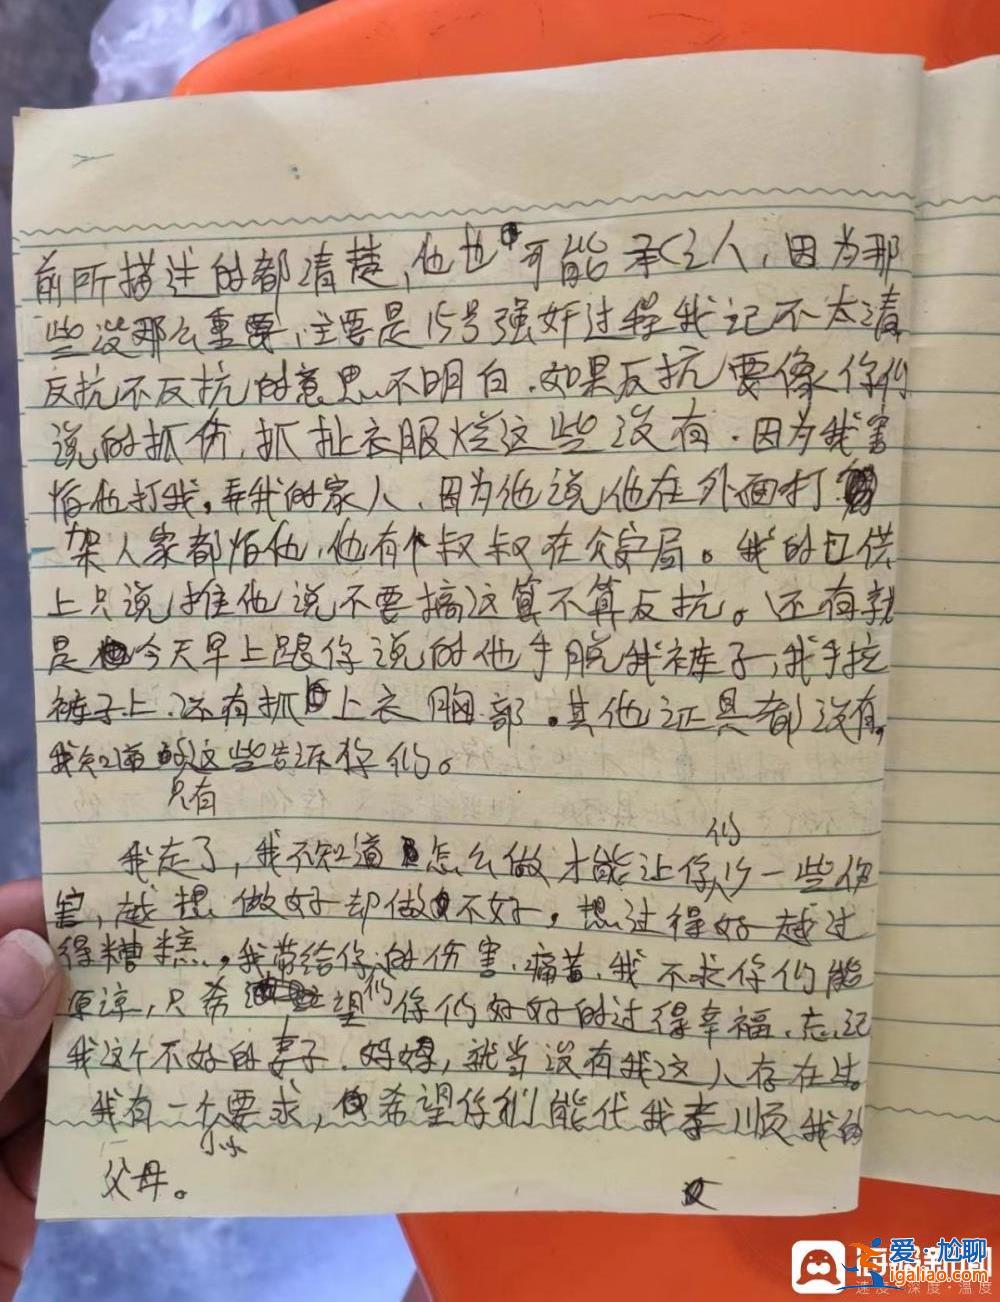 前所描述的都清楚，他也可能承认，因为那
些没那么重要，主要是15号强奸过程我记不太清
反抗不反抗的意思不明白．如果反抗要像你们
说的抓伤，抓扯衣服烂这些没有．因为我害
怕他打我，弄我的家人．因为他说他在外面打
架人家都怕他，他有个叔叔在公安局。我的口供
上只说推他说不要搞这算不算反抗。还有就
是今天早上跟你说的他手脱我裤子，我手拉
裤子上．还有抓上衣胸部．其他证具都没有，
我知道的这些告诉你们。
只有
我走了，我不知道怎么做才能让你们少一些伤
害，越想做好却做不好，想过得好越过
得糟糕．我带给你们的伤害．痛苦．我不求你们能
原谅，只希望你们好好的过得幸福．忘记
我这个不好的妻子．妈妈，就当没有我这人存在过。
我有一个小小要求，希望你们能代我孝顺我的
父母。
海报新闻
速度·深度·温度
爱·尬聊
igaliao.com